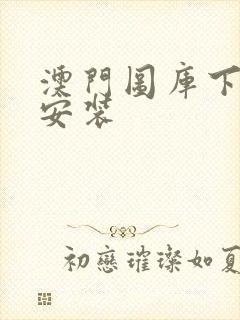 澳門圖庫下
安裝
初戀璀璨如夏